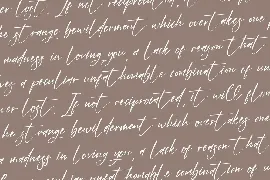 ver lost. Is not reciprocated, it
he strange bewilderment which overtakes one
a madness in loving you, a lack of reason that
es a peculiar unfathomable combination of un
ver lost. Is not reciprocated it will flem
he strange bewilderment which overtakes one
a madness in loving you, a lack of reason that
a peculiar unfathomable combination of